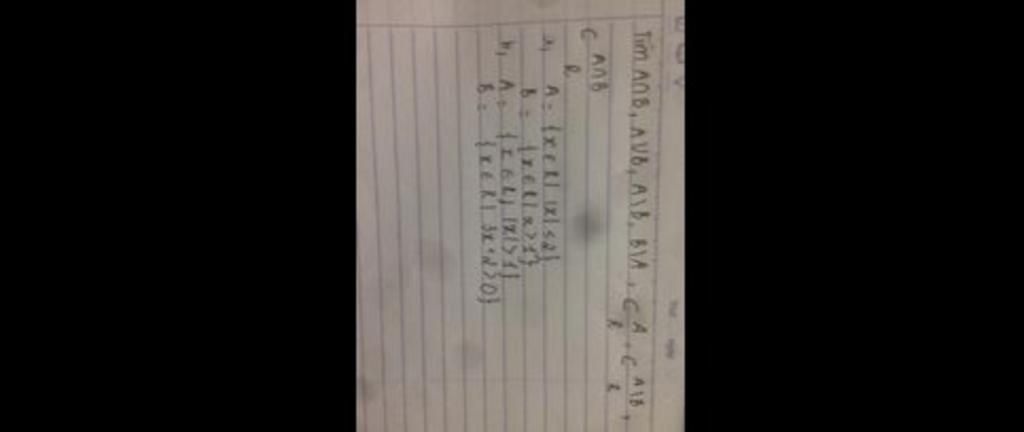 Tìm A∩B, A∪B, A\B, B\A, C_R^A, C_R^{A\B},
C_R^{A∩B}
a, A = {x∈R| |x|≤2}
B = {x∈R| x>1}
b, A = {x∈R, |x|>1}
B = {x∈R| 3x+2>0}